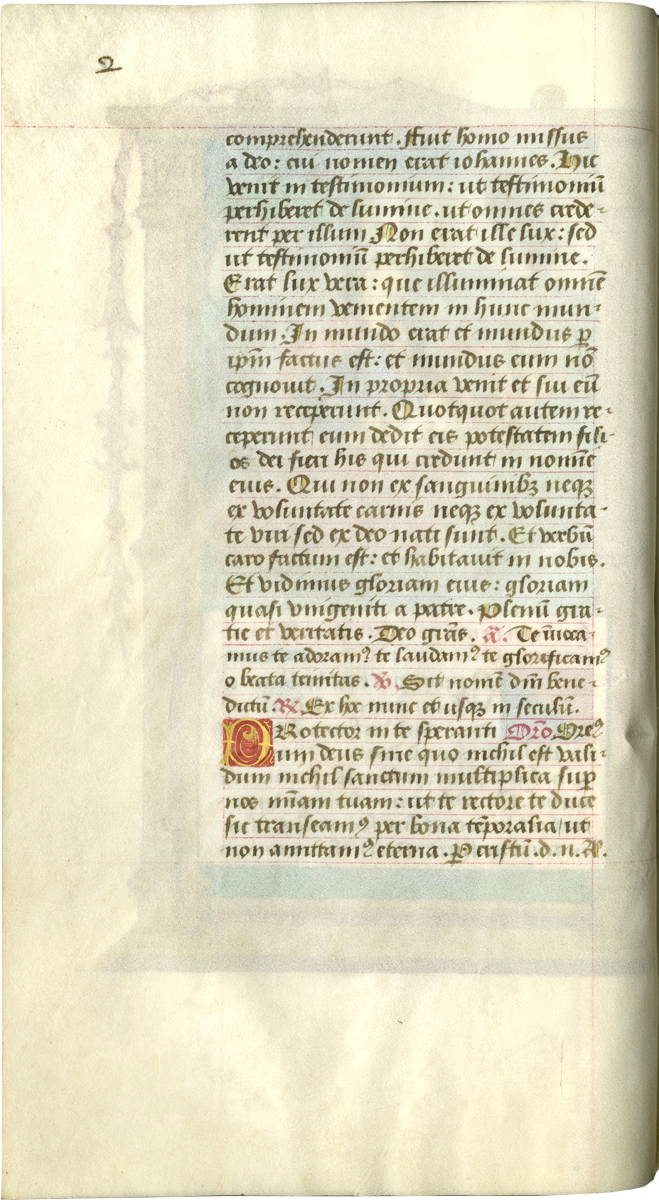 2
comprehenderunt. Fuit homo missus
a deo: cui nomen erat iohannes. Hic
venit in testimonium: ut testimoniū
perhiberet de lumine. ut omnes crede-
rent per illum. Non erat ille lux: sed
ut testimoniū perhiberet de lumine.
Erat lux vera: que illuminat omnē
hominem venientem in hunc mun-
dum. In mundo erat et mundus ꝑ
ipm̄ factus est: et mundus eum nō
cognouit. In propria venit et sui eū
non receperunt. Quotquot autem re-
ceperunt eum dedit eis potestatem fili-
os dei fieri his qui credunt in nomīe
eius. Qui non ex sanguinibꝫ neqꝫ
ex voluntate carnis neqꝫ ex volunta-
te viri sed ex deo nati sunt. Et verbū
caro factum est: et habitauit in nobis.
Et vidimus gloriam eius: gloriam
quasi vnigeniti a patre. Plenū gra-
tie et veritatis. Deo gr̄as. a᷑. Te īuoca-
mus te adoramꝰ te laudamꝰ te glorificamꝰ
o beata trinitas. ℣. Sit nomē dn̄i bene-
dictū. ℟. Ex hoc nunc et usqꝫ in seculū.
PRotector in te sperantiū Orō. Oremꝰ
um deus sine quo nichil est vali-
dum nichil sanctum multiplica sup̄
nos mīam tuam: ut te rectore te duce
sic transeamꝰ per bona tēporalia/ut
non amittamꝰ eterna. P̄ cristū. d. n. A.